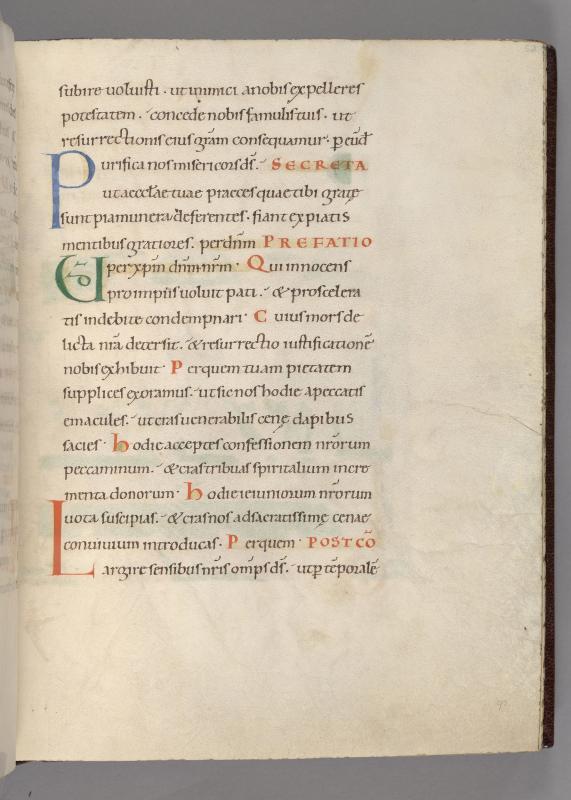 subire uoluisti · ut inimici anobis expelleres
potestatem · concede nobis famulis tuis · ut
resurrectionis eius grãm consequamur · p eũđ
Purifica nos misericors d̃s · SECRETA
ut aeccl̃ae tuae praeces quae tibi gratę
sunt pia munera deferentes · fiant expiatis
mentibus gratiores · per dñm PREFATIO
VD per xp̃m dñm nr̃m · Qui innocens
pro impiis uoluit pati · & pro scelera
tis indebite condempnari · Cuius mors de
licta nr̃a detersit · & resurrectio iustificationẽ
nobis exhibuit · Per quem tuam pietatem
supplices exoramus · ut sic nos hodie a peccatis
emacules · ut cras uenerabilis cenę dapibus
sacies · hodie acceptes confessionem nr̃orum
peccaminum · & cras tribuas spiritalium incre
menta donorum · hodie ieiuniorum nr̃orum
uota suscipias · & cras nos ad sacratissimę cenae
conuiuium introducas · Per quem · POSTCÕ
Largire sensibus nr̃is omp̃s d̃s · ut p tẽporalẽ